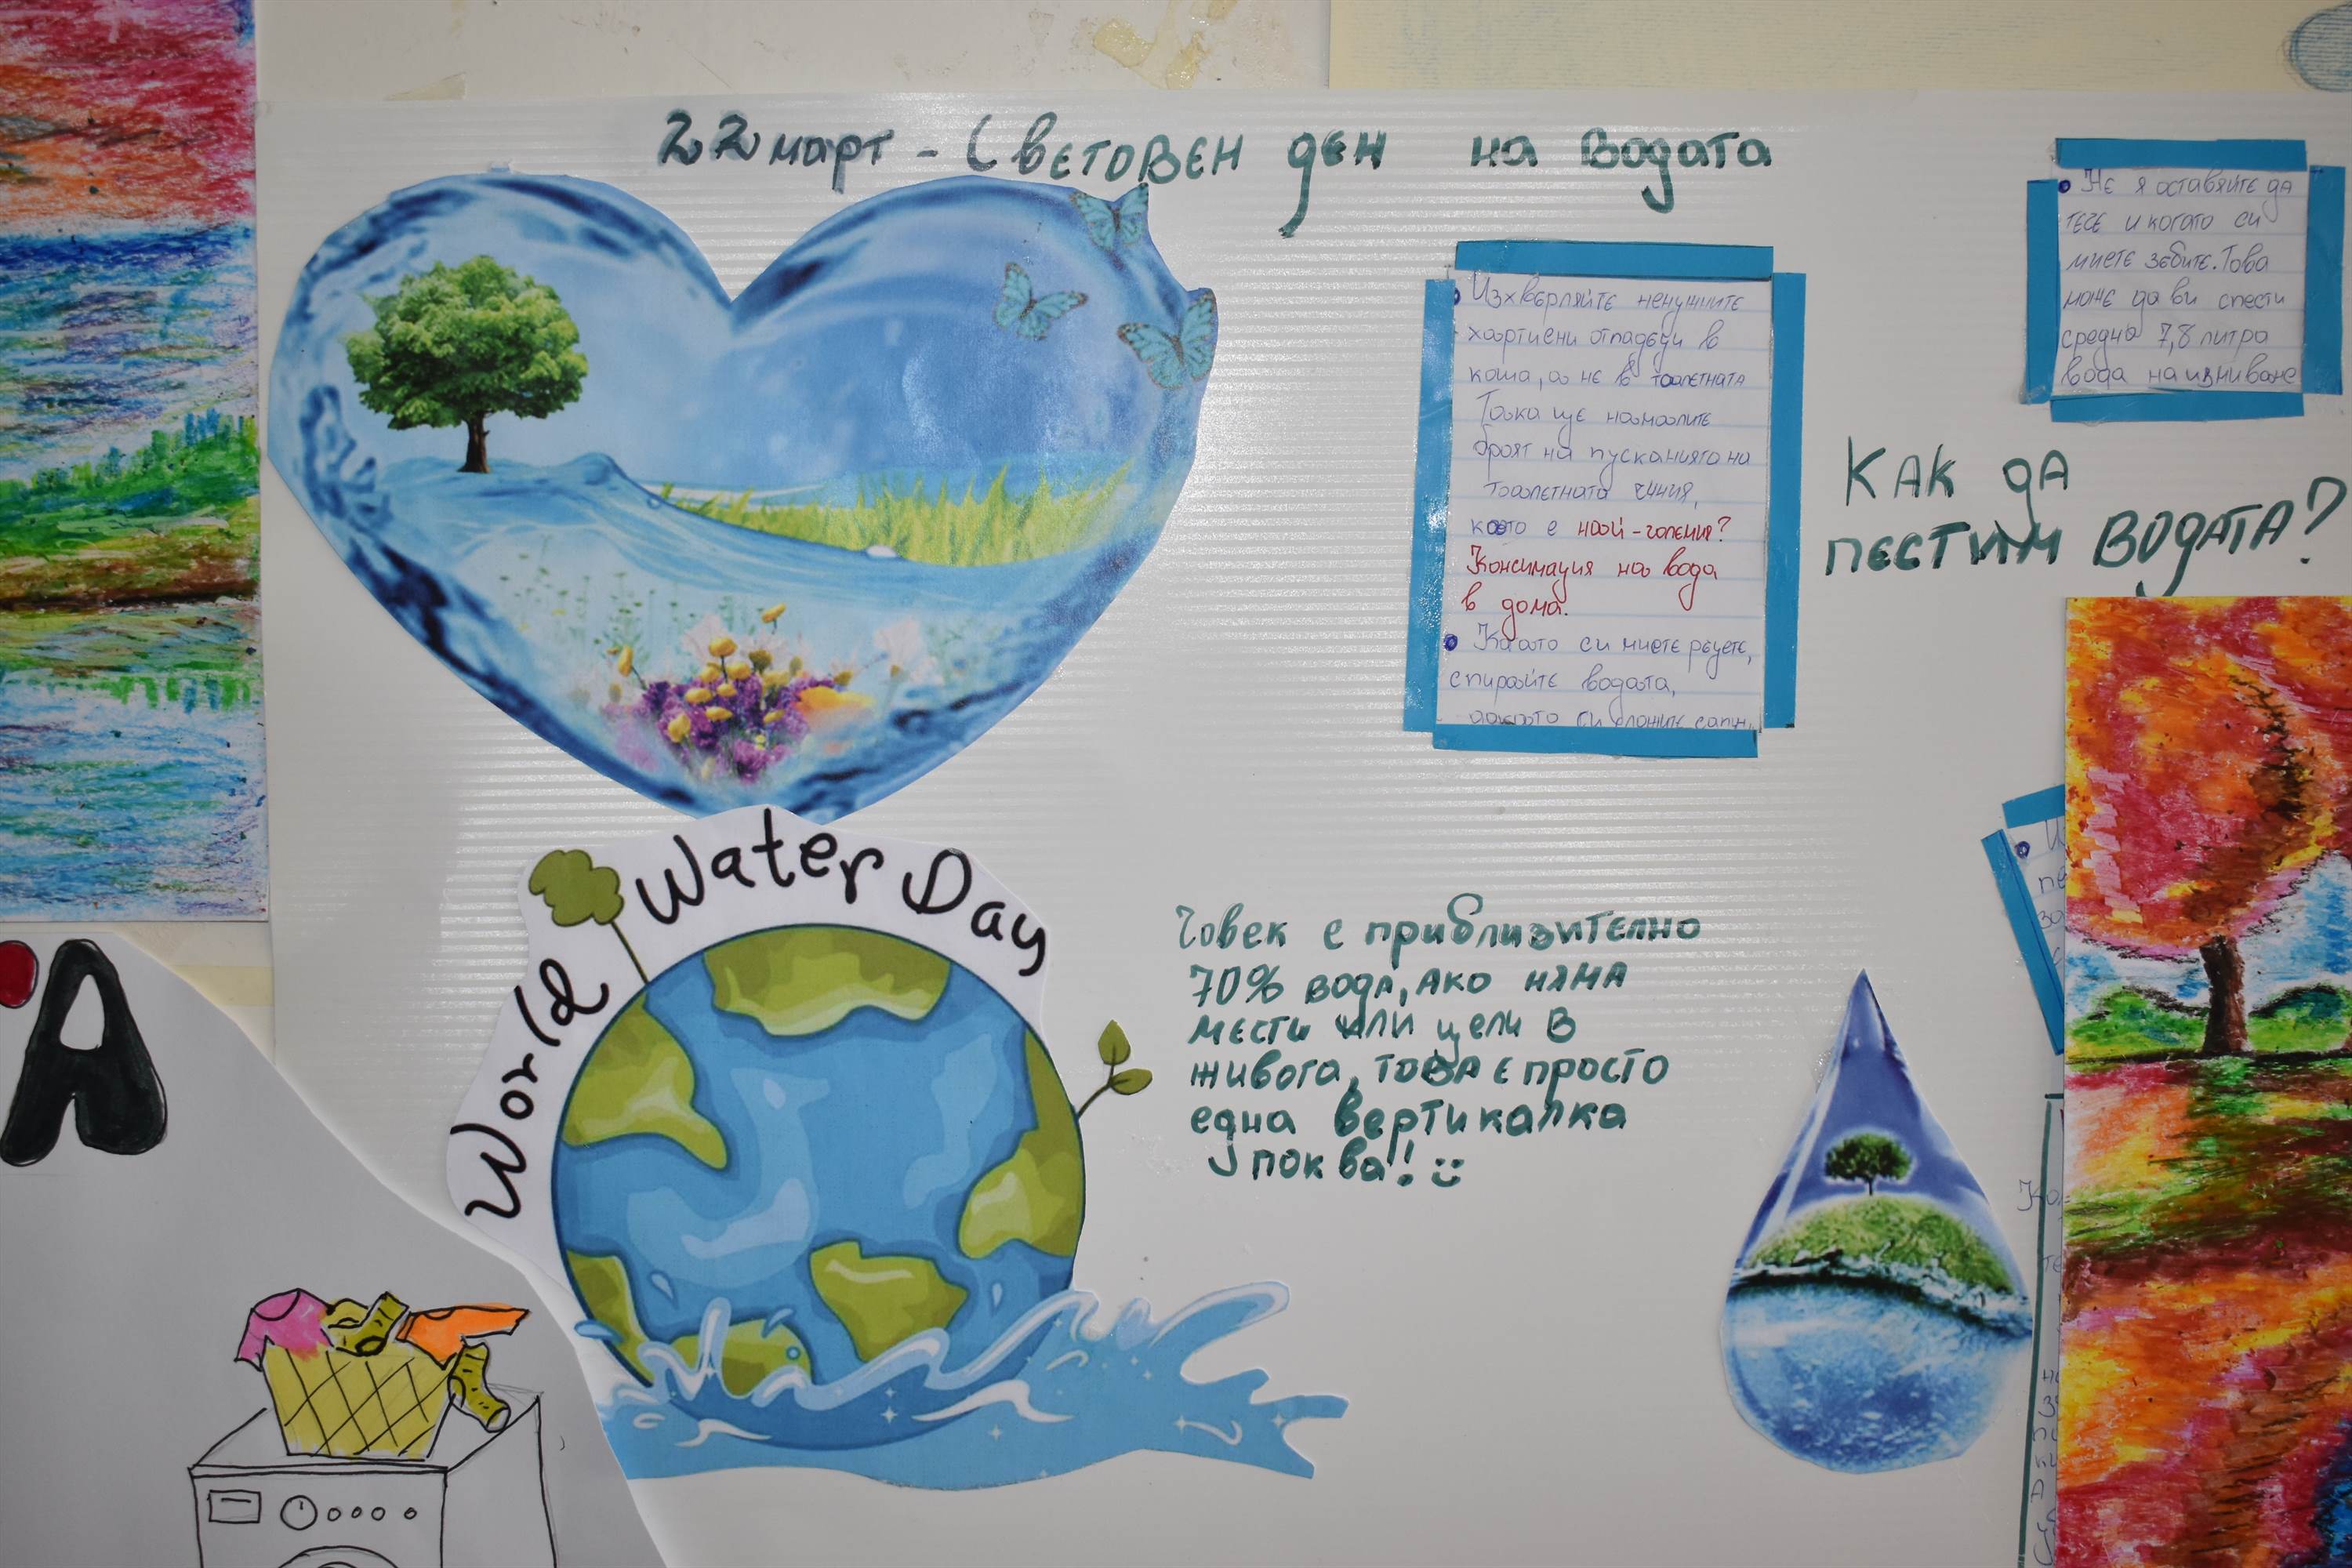 22 март - Световен ден на водата
• Не я оставяйте да
тече и когато си
миете зъбите. Това
може да ви спести
средно 7,8 литра
вода на измиване
• Изхвърляйте ненужните
хартиени отпадъци в
коша, а не в тоалетната
Така ще намалите
броят на пусканията на
тоалетната чиния,
което е най-голения?
Консимация на вода
в дома.
• Когато си миете ръцете,
спирайте водата,
докато си сложите сапун.
КАК дА
пестим водата?
World Water Day
Човек е приблизително
70% вода, ако няма
мести или цели в
живота, това е просто
една вертикалка
локва! :)
А